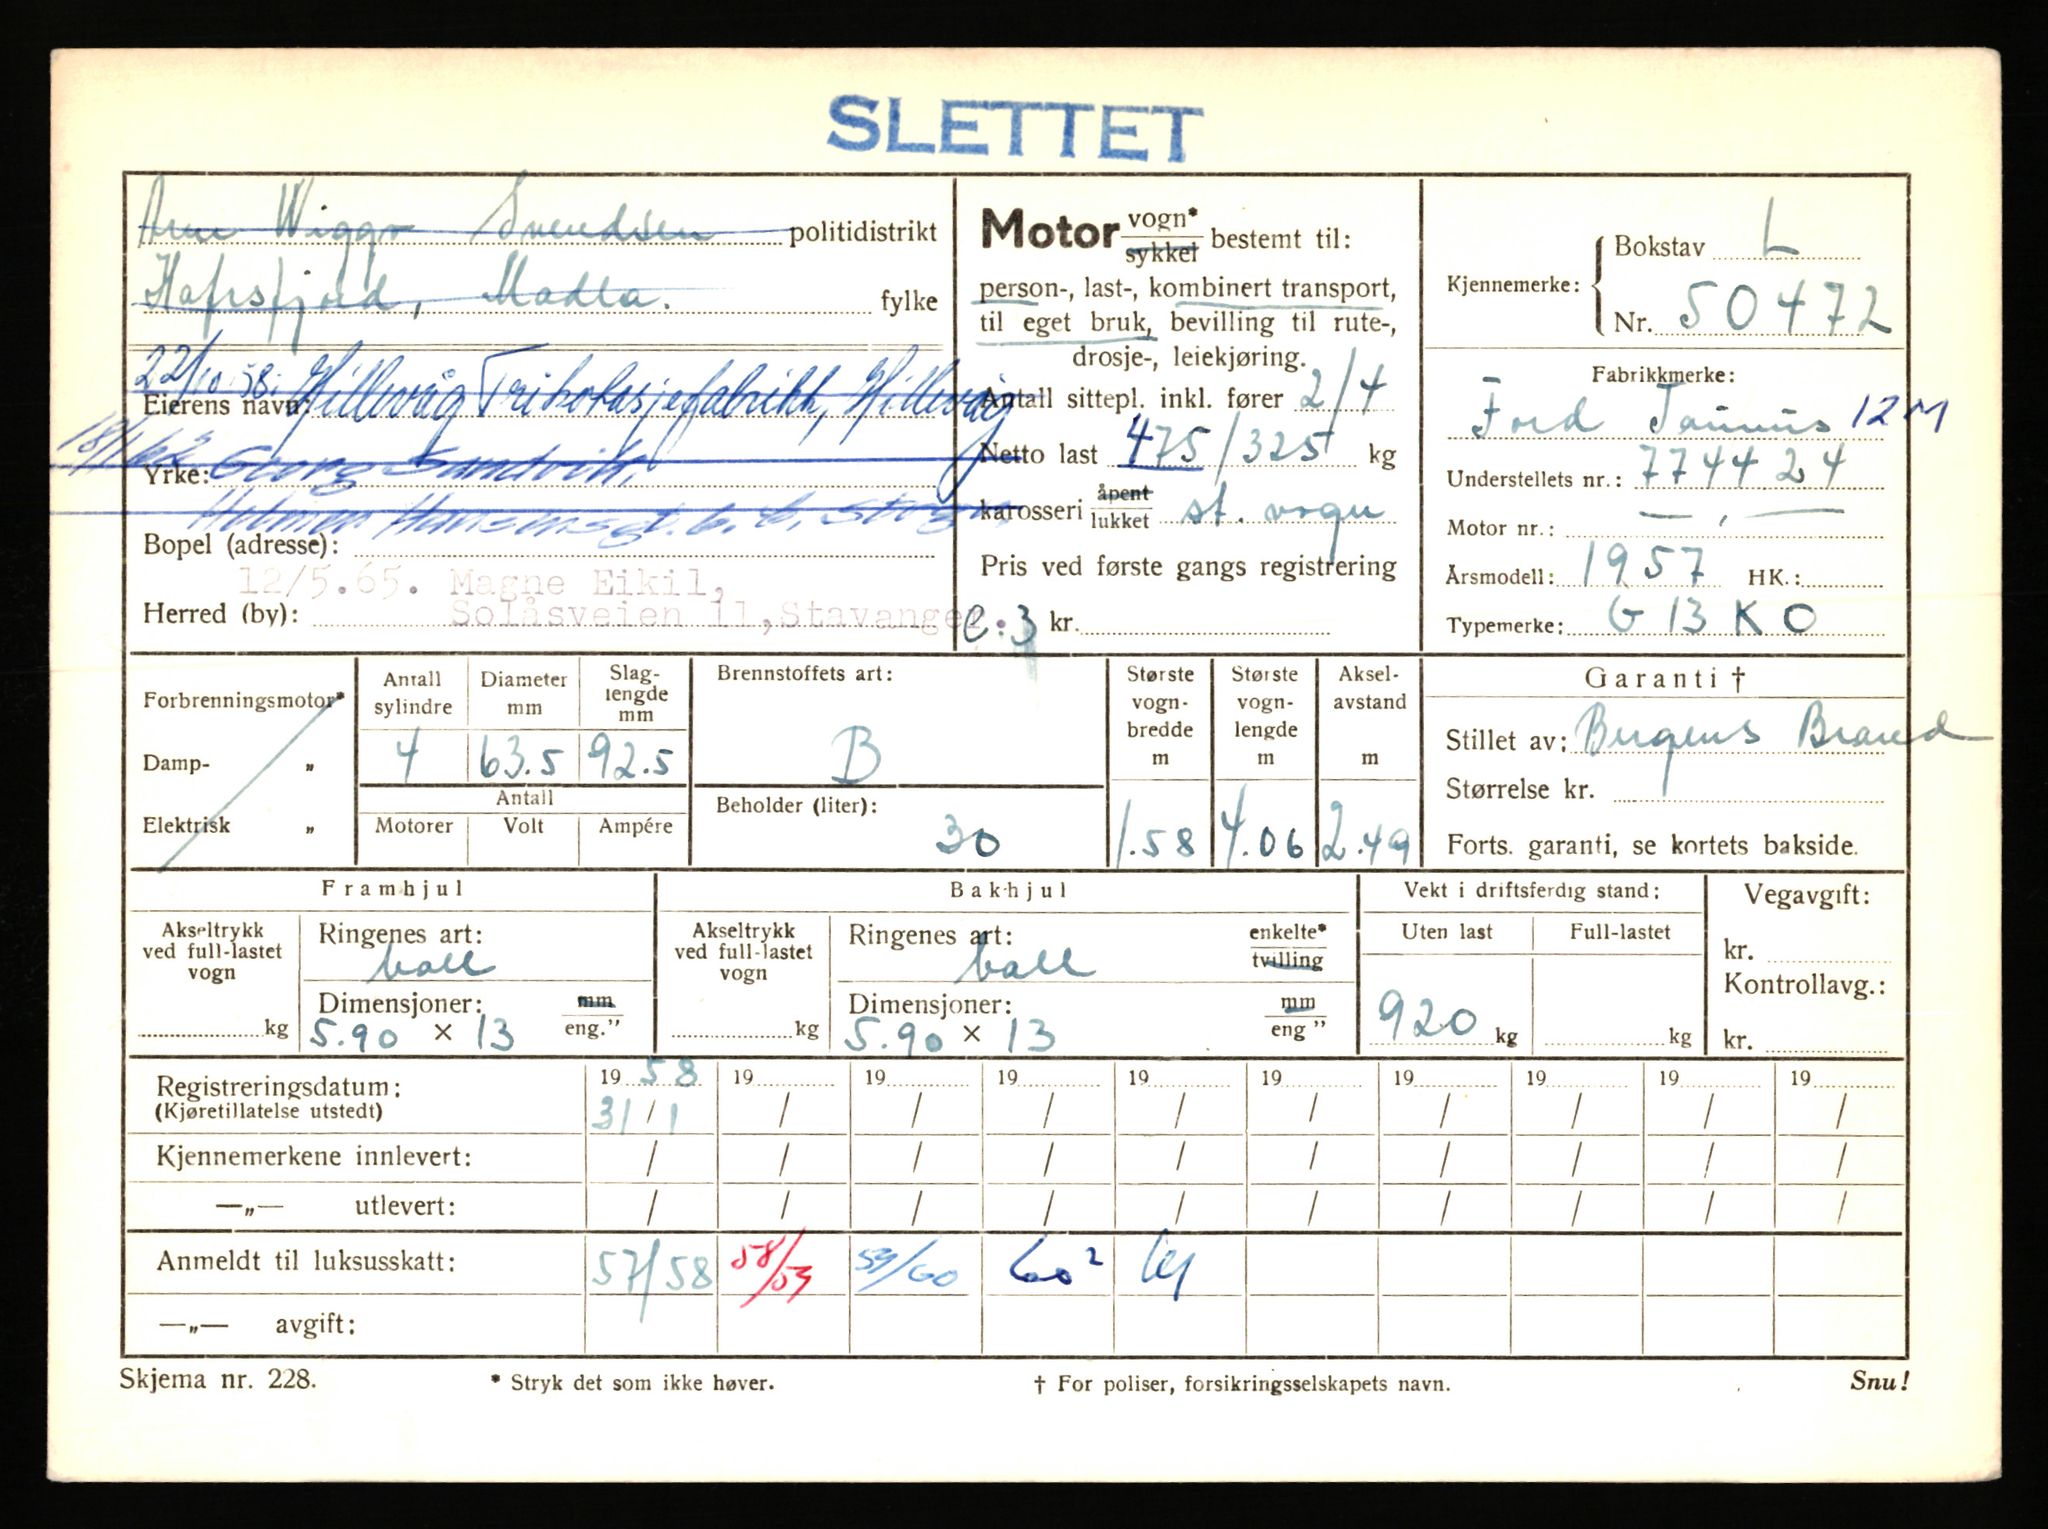 SLETTET
Arne Wiggo Svendsen politidistrikt
Hafrsfjord, Madla. fylke
22/10 58. Hillevåg Trikotasjefabrikk, Hillevåg
Eierens navn:
18/1 62 Georg Sandvik,
Yrke:
Helmer Hansensgt. 6. b, Stvgr.
Bopel (adresse):
12/5.65. Magne Eikil,
Herred (by): Solåsveien 11, Stavanger.
Motor vogn* sykkel bestemt til:
person-, last-, kombinert transport,
til eget bruk, bevilling til rute-,
drosje-, leiekjøring.
Antall sittepl. inkl. fører 2/4
Netto last 475/325 kg
karosseri åpent lukket st. vogn
Pris ved første gangs registrering
C:3 kr.
Kjennemerke: Bokstav L
Nr. 50472
Fabrikkmerke:
Ford Taunus 12M
Understellets nr.: 774424
Motor nr.: — . —
Årsmodell: 1957 HK.:
Typemerke: G 13 K O
Forbrenningsmotor*
Damp- „
Elektrisk „
Antall sylindre Diameter mm Slag-lengde mm
4 63.5 92.5
Antall
Motorer Volt Ampére
Brennstoffets art:
B
Beholder (liter):
30
Største vogn-bredde m
1.58
Største vogn-lengde m
4.06
Aksel-avstand m
2.49
Garanti †
Stillet av: Bergens Brand
Størrelse kr.
Forts. garanti, se kortets bakside.
Framhjul
Akseltrykk ved full-lastet vogn
kg
Ringenes art:
ball
Dimensjoner: mm eng."
5.90 × 13
Bakhjul
Akseltrykk ved full-lastet vogn
kg
Ringenes art: enkelte* tvilling
ball
Dimensjoner: mm eng"
5.90 × 13
Vekt i driftsferdig stand:
Uten last Full-lastet
920 kg kg
Vegavgift:
kr.
Kontrollavg.:
kr.
Registreringsdatum: 19 58 19 19 19 19 19 19 19 19 19
(Kjøretillatelse utstedt) 31/1 / / / / / / / / /
Kjennemerkene innlevert: / / / / / / / / / /
—„— utlevert: / / / / / / / / / /
Anmeldt til luksusskatt: 57/58 58/59 59/60 60² 61
—„— avgift:
Skjema nr. 228. * Stryk det som ikke høver. † For poliser, forsikringsselskapets navn. Snu!